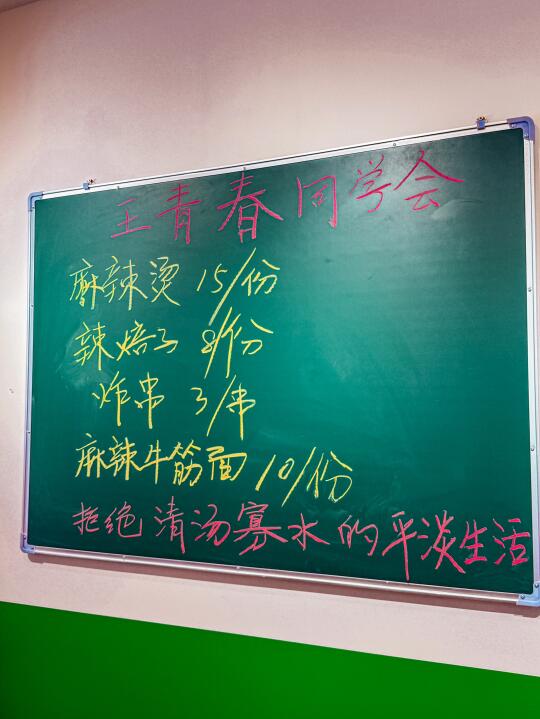 王青春同学会
麻辣烫 15/份
辣焙子 8/份
炸串 3/串
麻辣牛筋面 10/份
拒绝清汤寡水的平淡生活